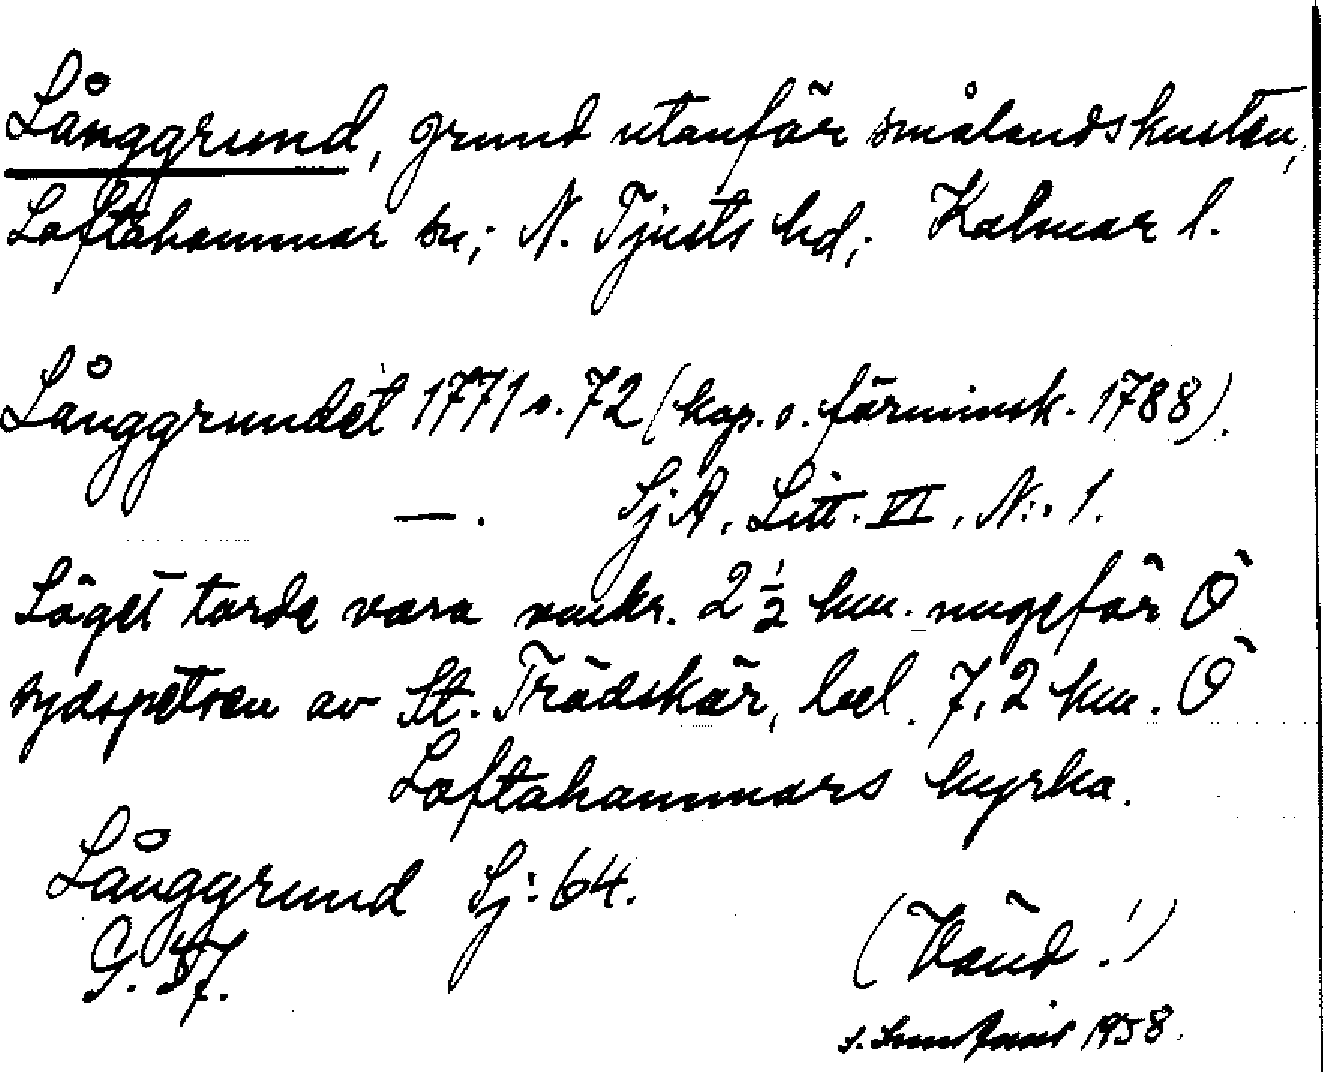 Långgrund, grund utanför smålandskusten,
Loftahammar sn; N. Tjusts hd; Kalmar l.
Långgrundet 1771 o. 72 (kop. o. förminsk. 1788).
—. Sj:A, Litt. VI, N:o 1.
Läget torde vara omkr. 2 1/2 km. ungefär Ö
sydspetsen av St. Trädskär, bel. 7,2 km. Ö
Loftahammars kyrka.
Långgrund Sj: 64.
G. 57.
(Vänd!)
1958.